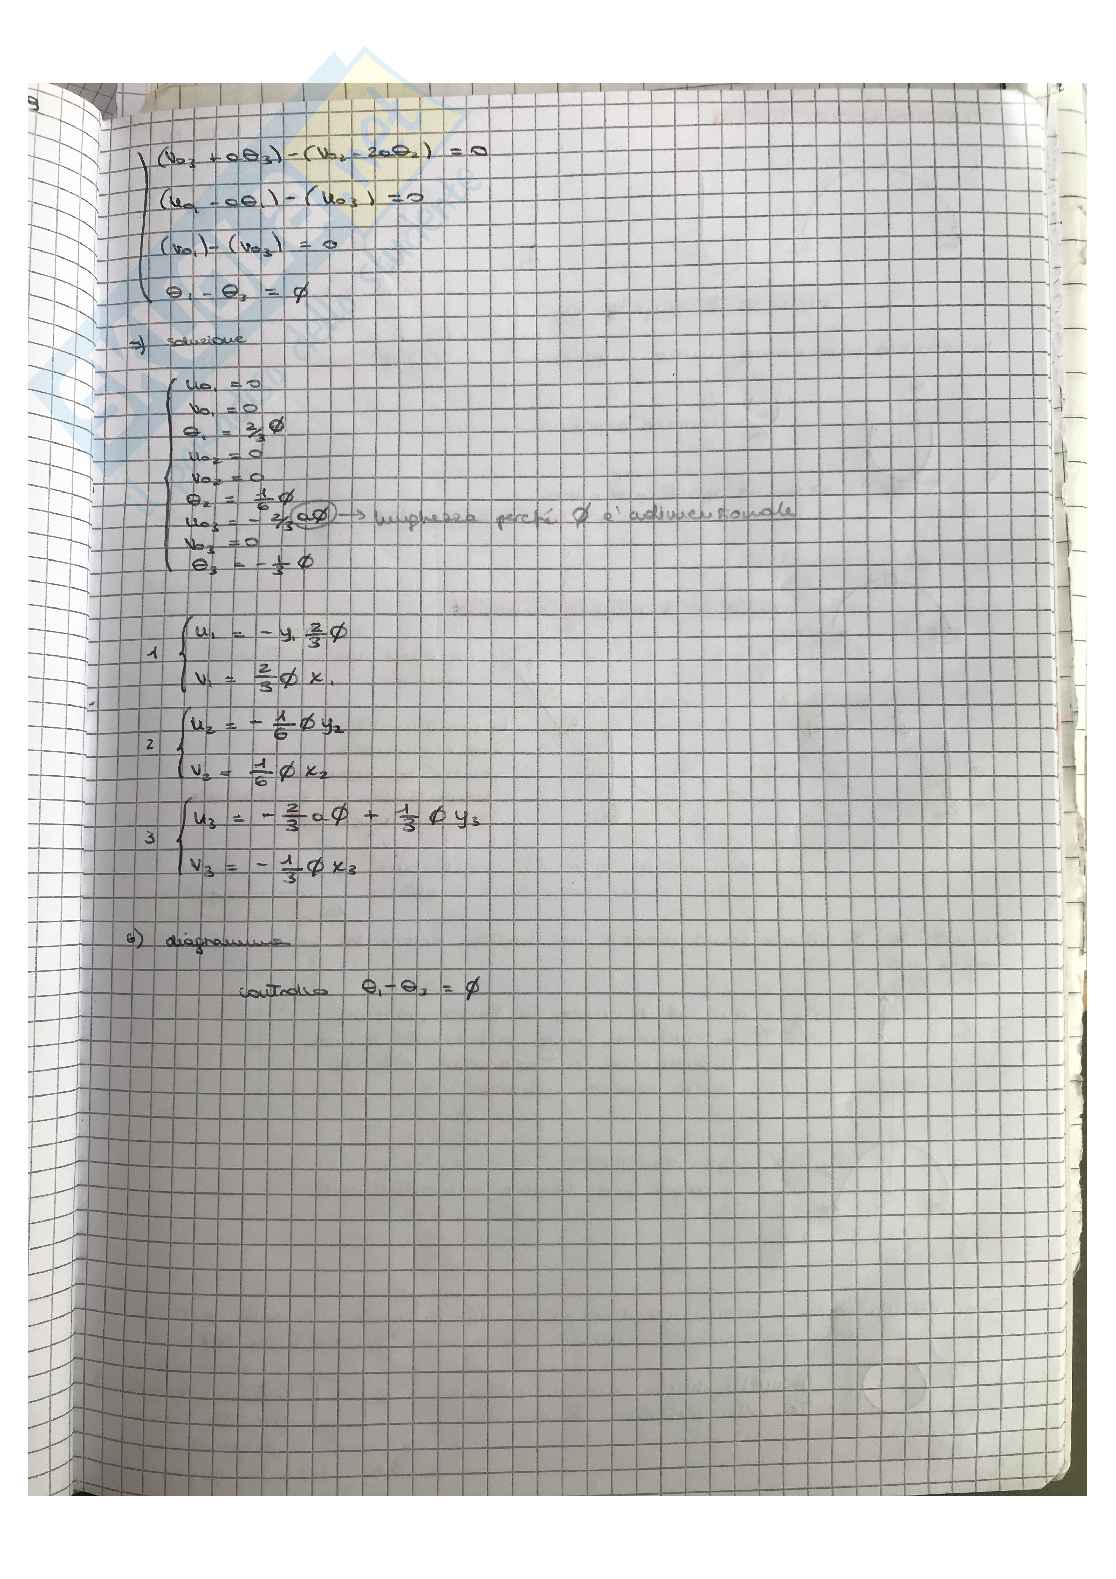 9
(v₀₃ + aθ₃) - (v₀₂ - 2aθ₂) = 0
(u₀₁ - aθ₁) - (u₀₃) = 0
(v₀₁) - (v₀₃) = 0
θ₁ - θ₃ = ϕ
=> soluzione
u₀₁ = 0
v₀₁ = 0
θ₁ = 2/3 ϕ
u₀₂ = 0
v₀₂ = 0
θ₂ = 1/6 ϕ
u₀₃ = - 2/3 aϕ → lunghezza perché ϕ è adimensionale
v₀₃ = 0
θ₃ = - 1/3 ϕ
1 u₁ = - y₁ 2/3 ϕ
v₁ = 2/3 ϕ x₁
2 u₂ = - 1/6 ϕ y₂
v₂ = 1/6 ϕ x₂
3 u₃ = - 2/3 aϕ + 1/3 ϕ y₃
v₃ = - 1/3 ϕ x₃
6) diagramma
controllo θ₁ - θ₃ = ϕ